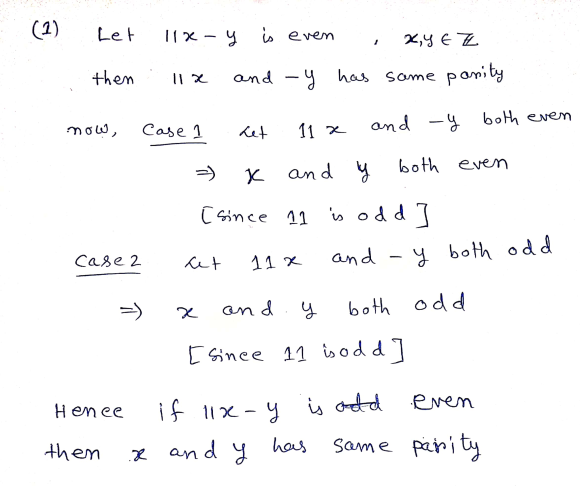 (1) Let 11x - y is even , x,y ∈ ℤ
then 11x and -y has same parity
now, Case 1 Let 11x and -y both even
⇒ x and y both even
[Since 11 is odd]
Case 2 Let 11x and -y both odd
⇒ x and y both odd
[Since 11 is odd]
Hence if 11x - y is ~~odd~~ even
then x and y has same parity